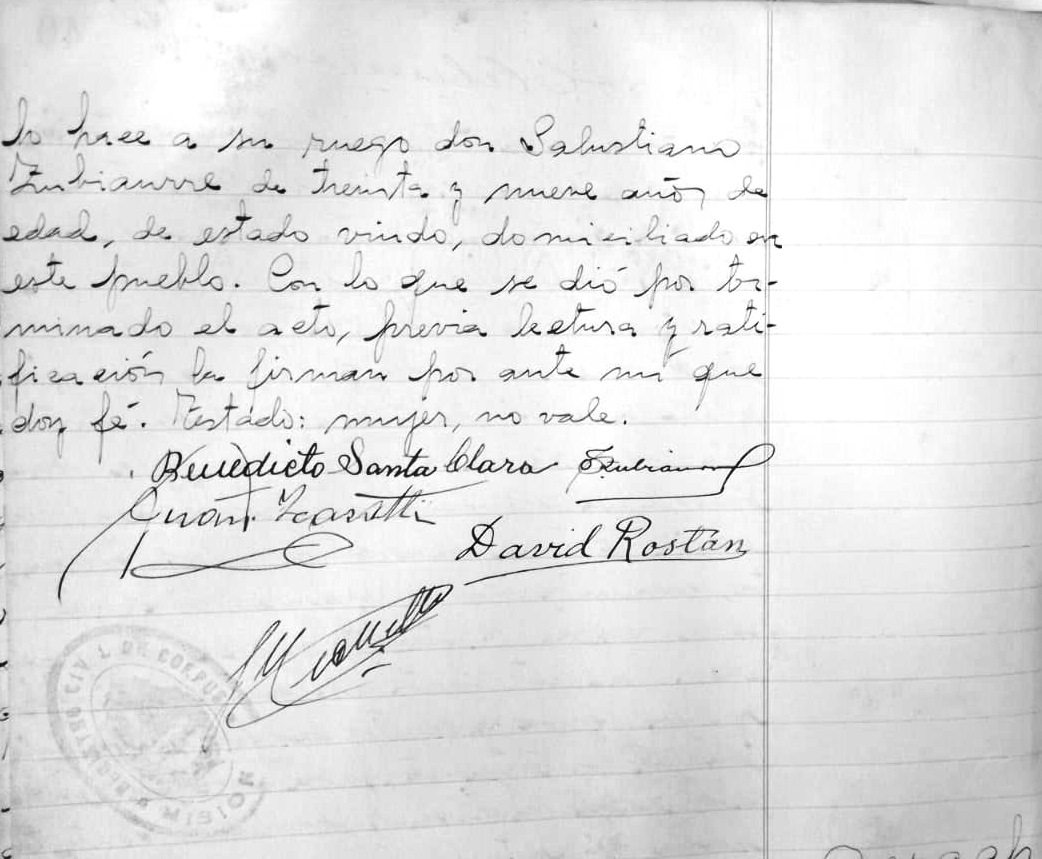 lo hace a su ruego don Salustiano
Zubiaurre de treinta y nueve años de
edad, de estado viudo, domiciliado en
este pueblo. Con lo que se dió por ter-
minado el acto, previa lectura y rati-
ficación la firman por ante mi que
doy fé. Testado: mujer, no vale.
Benedicto Santa Clara SZubiaurre
Juan
David Rostán
REGISTRO CIVIL DE CORPUS